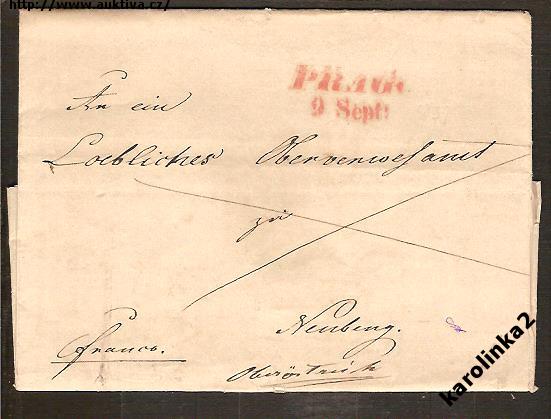 http://www.auktiva.cz/
PRAG
9 Sept:
An ein
Loebliches Oberverwesamt
zu
Neuberg.
franco.
Oberöstreich
karolinka2